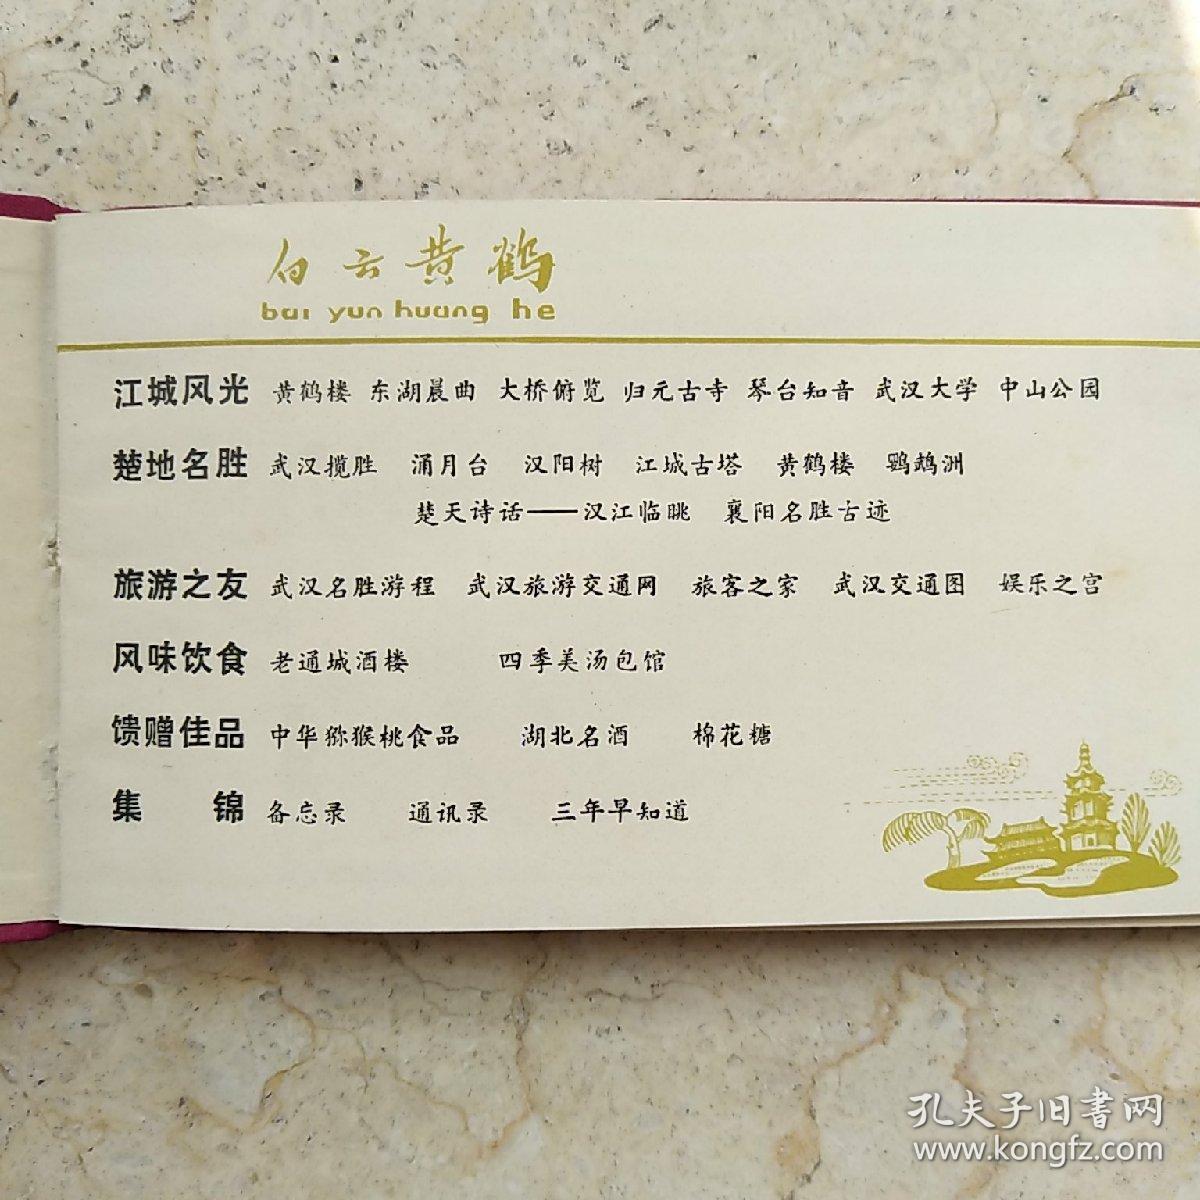 白云黄鹤
bai yun huang he
江城风光 黄鹤楼 东湖晨曲 大桥俯览 归元古寺 琴台知音 武汉大学 中山公园
楚地名胜 武汉揽胜 涌月台 汉阳树 江城古塔 黄鹤楼 鹦鹉洲
楚天诗话——汉江临眺 襄阳名胜古迹
旅游之友 武汉名胜游程 武汉旅游交通网 旅客之家 武汉交通图 娱乐之宫
风味饮食 老通城酒楼 四季美汤包馆
馈赠佳品 中华猕猴桃食品 湖北名酒 棉花糖
集锦 备忘录 通讯录 三年早知道
孔夫子旧书网
www.kongfz.com